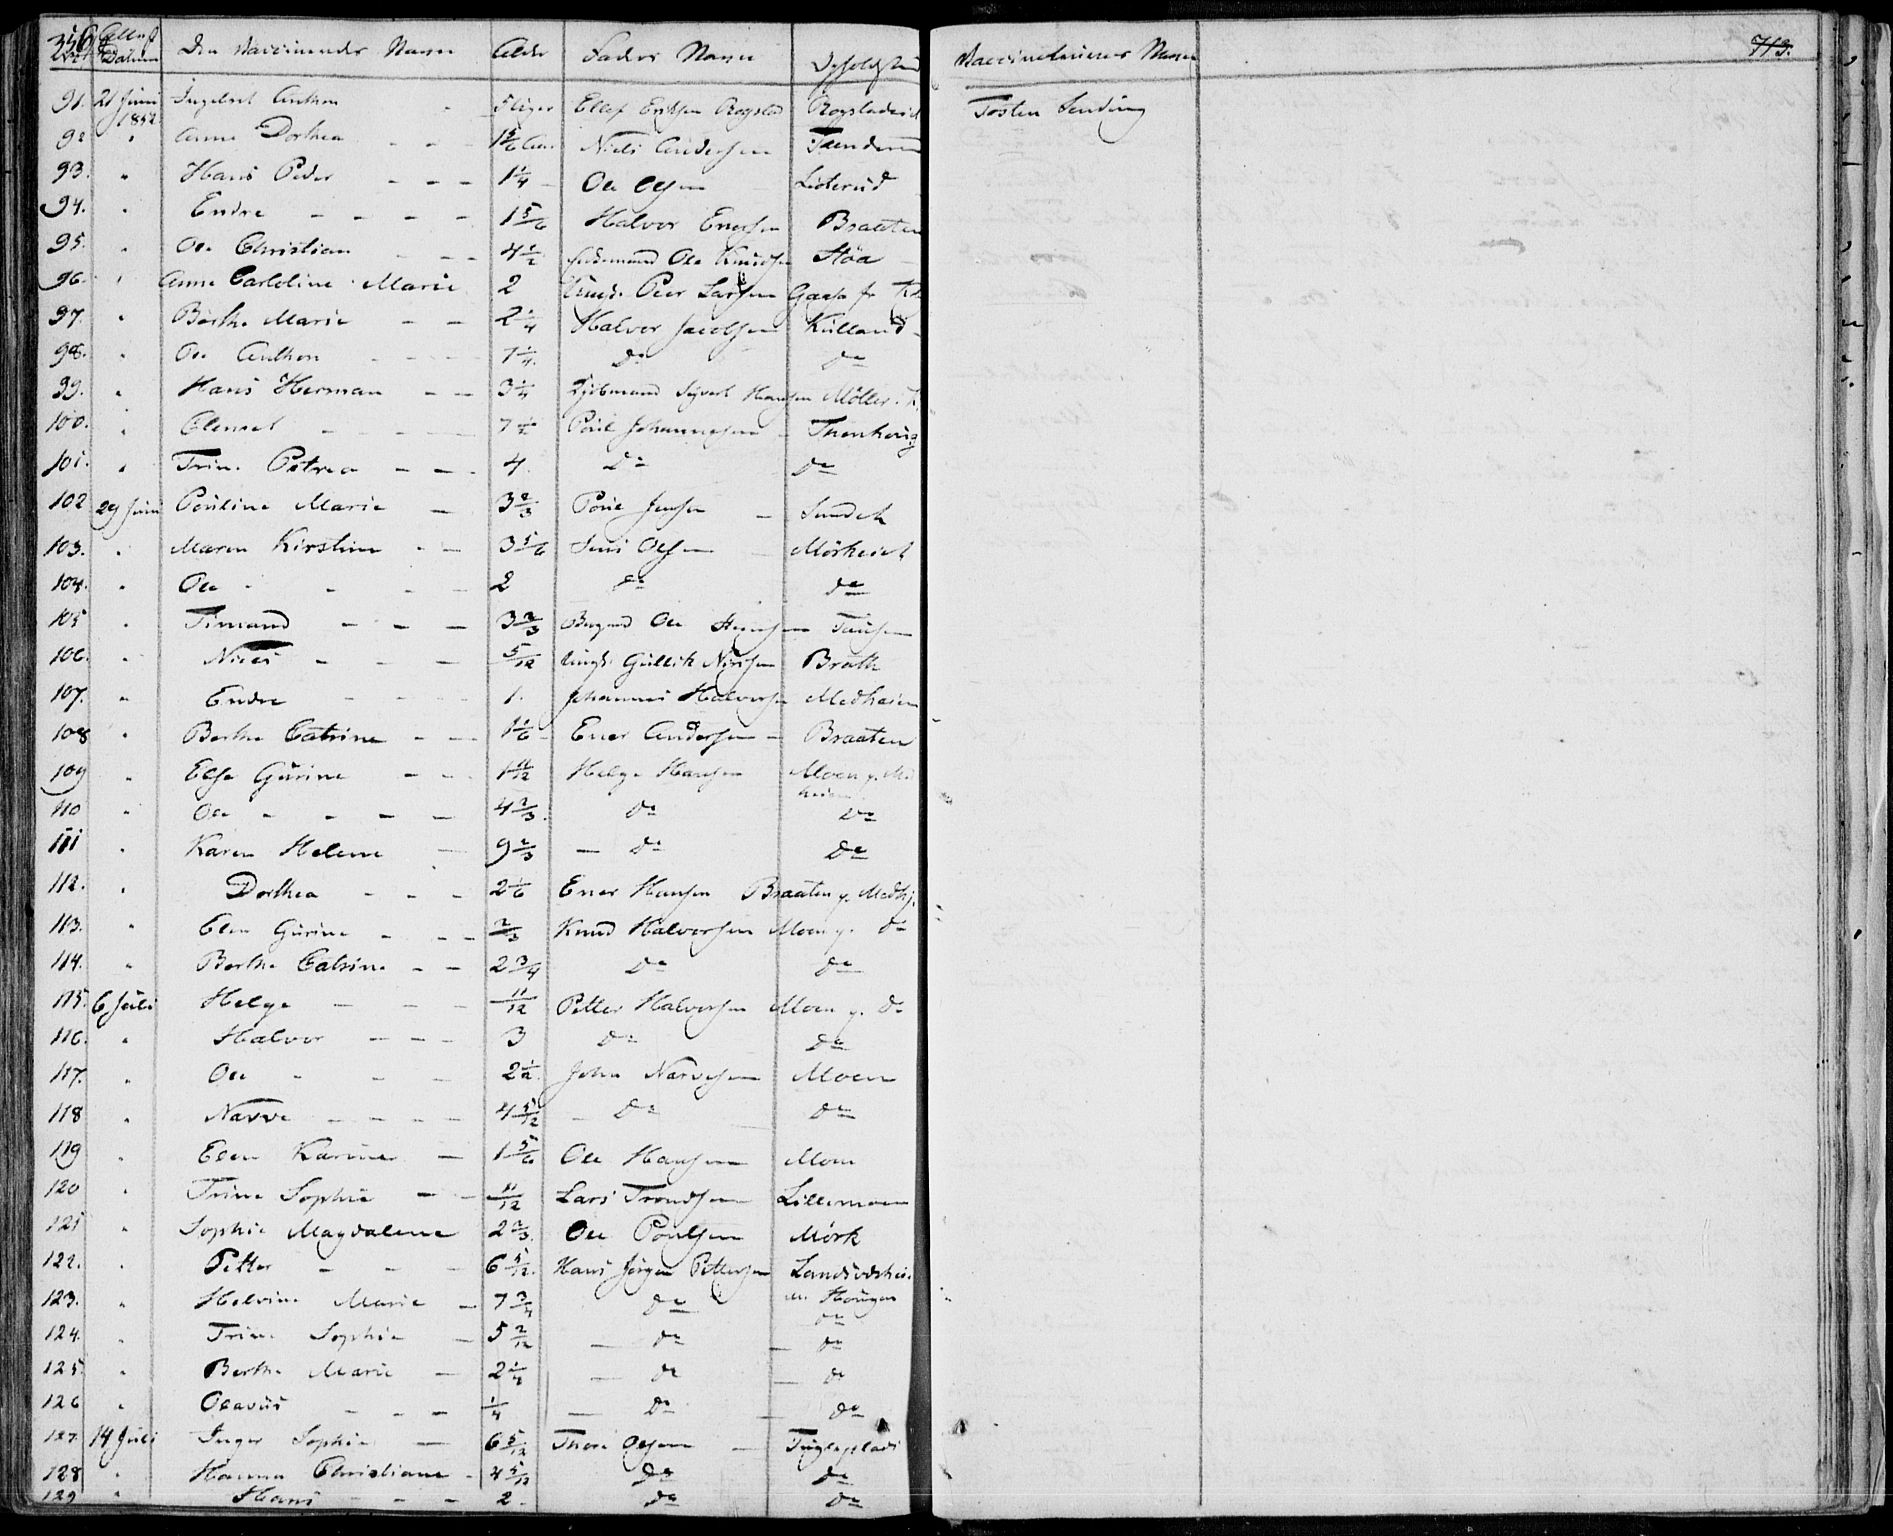 356 Attest Datum Den Vaccineredes Navn Alder Faders Navn Opholdssted Vaccinateurens Navn 713.
91. 21 Juni 1852 Ingebret Anthon 5 Uger Ellef Eriksen Rogslad Tosten Sending
92 " Anne Dorthea - - - 1 5/6 Aar Niels Andersen
93. " Hans Peder - - - 1 1/4 - Ole Olsen Lieterud
94. " Endre - - - - 1 5/6 Halvor Enersen Braaten
95. " Ole Christian - - - 4 1/2 Ole Knudsen Höa
96. " Anne Caroline Marie 2 Peer Larsen
97. " Berthe Marie - - 2 1/4 Halvor Jacobsen Kulland
98. " Ole Anthon - - - 7 1/4 Do Do
99. " Hans Herman - - 3 1/4 Kjöbmand Syvert Hansen Möller
100. " Clemet - - - - 7 1/2 Poul Johannesen -
101. " Trine Petrea - - - 4. Do Do
102 29 Juni Pouline Marie - 3 2/3 Poul Jensen - Sundet
103. " Maren Kirstine - - 3 5/6 Jens Olsen Mörkeiet
104. " Ole - - - - 2 Do Do
105 " Timand - - - 3 2/3 Ole
106. " Niels - - - 5/12 Ungk. Gullik Nirisen Bråth
107. " Endre - - - 1. Johannes Halversen Medheien
108 " Berthe Catrine - - - 1 1/6 Ener Andersen - Braaten
109 " Else Gurine - - 1 11/12 Helge Hansen Moen p. Medheien
110 " Ole - - - - 4 2/3 Do Do
111 " Karen Helene - 9 2/3 - Do Do
112. " Dorthea - - - 2 1/6 Ener Hansen Braaten p. Medhj.
113. " Elen Gurine - - - 2/3 Knud Halversen Moen p. Do
114. " Berthe Catrine - - 2 3/4 Do Do
115. 6 Juli Helge - - - 11/12 Petter Halversen Moen p. Do
116. " Halvor - - - 3 Do Do
117. " Ole - - - 2 1/2 John Narvesen Moen
118 " Narve - - - - 4 5/12 - Do Do
119 " Elen Karine - 1 5/6 Ole Hansen Moen
120 " Trine Sophie - - 11/12 Lars Trondsen Lillemoen
121 " Sophie Magdalene 2 2/3. Ole Poulsen Mörk
122. " Petter - - - 6 5/12. Hans Jörgen Pettersen
123. " Helvine Marie - 7 3/4 Do Do
124. " Trine Sophie - 5 2/12 - Do - Do
125. " Berthe Marie - 2 1/4 - Do - Do
126 " Olavus - - - 1/4 - Do - Do
127. 14 Juli Inger Sophie - 6 5/12 Thor Olsen - Tugleplads
128 " Hanna Christiane - 4 5/12 Do Do
129 " Hans - - - 2 - Do Do